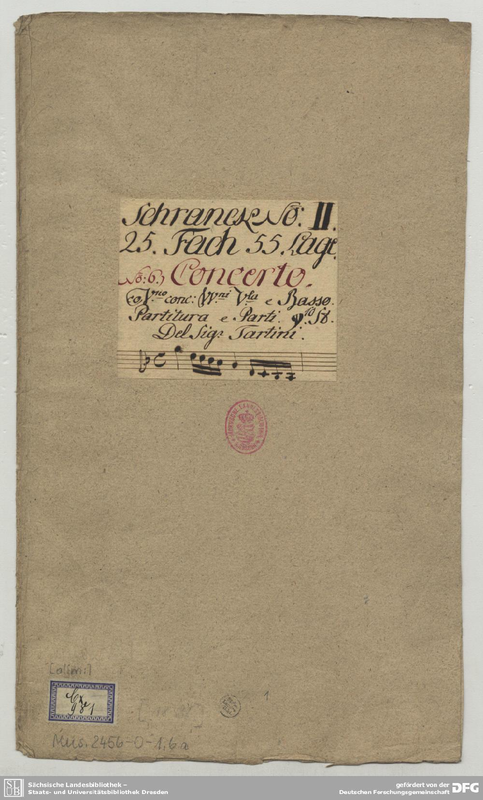 Schranck No: II.
25. Fach 55. Lage.
No: 6.) Concerto.
co Vno conc: VVni Vla e Basso.
Partitura e Parti. St.
Del Sigr Tartini.
Mus. 2456-O-1,6a
1
SLUB
Sächsische Landesbibliothek –
Staats- und Universitätsbibliothek Dresden
gefördert von der
Deutschen Forschungsgemeinschaft DFG